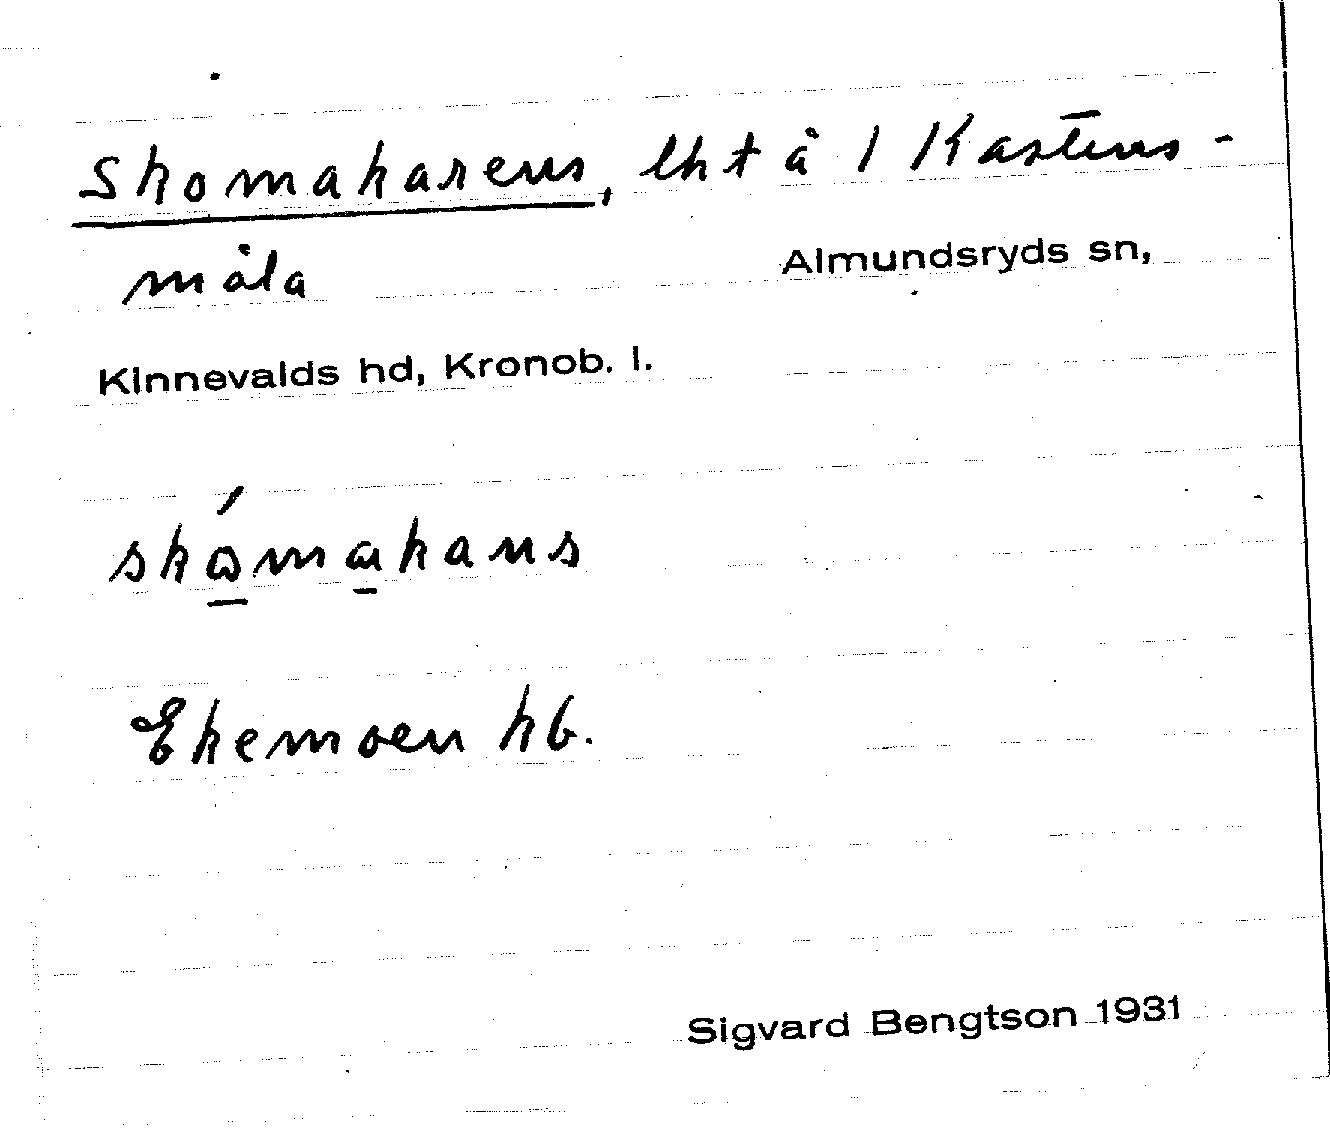 Skomakarens, lht å 1 Kastens-
måla Almundsryds sn,
Kinnevalds hd, Kronob. l.
skómakans
Ekemoen hb.
Sigvard Bengtson 1931